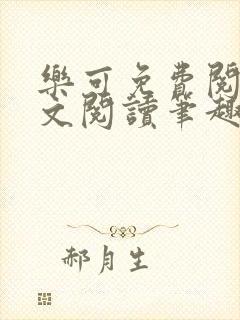 樂可免費閱
文閱讀筆趣
郝月生